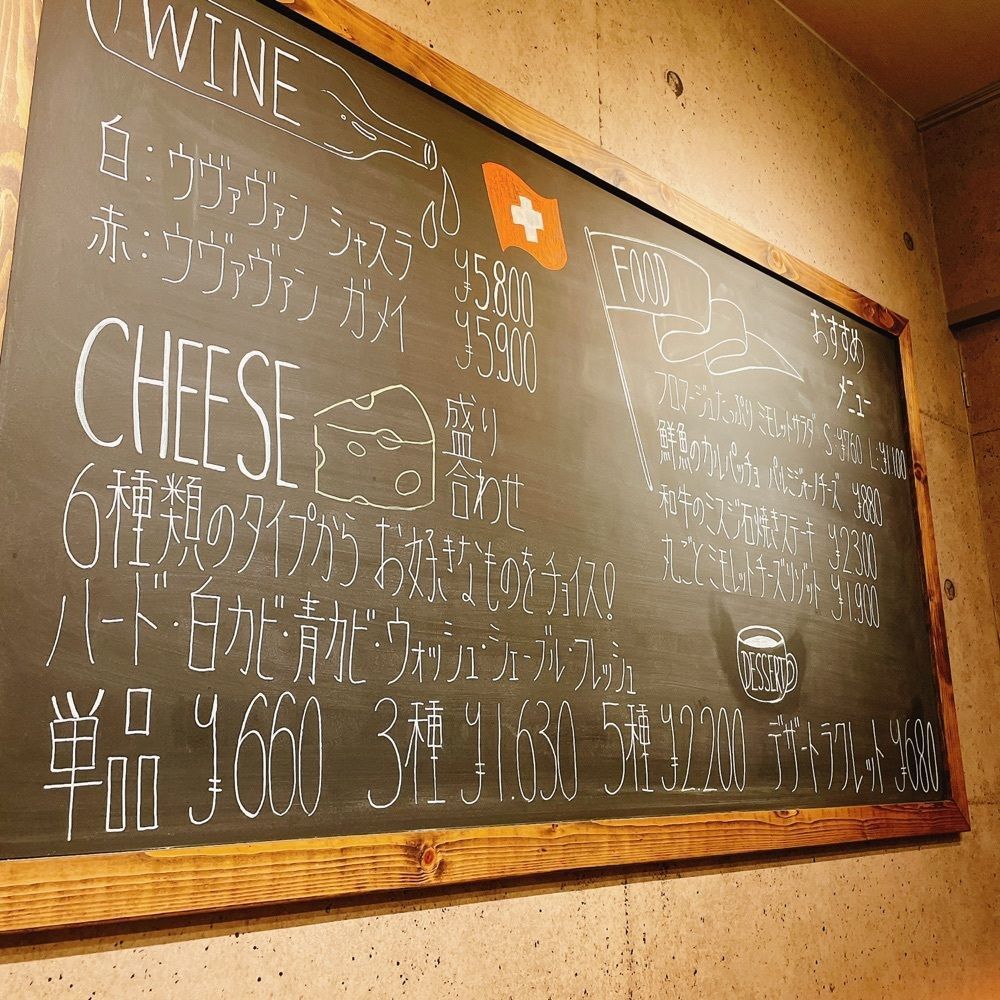 WINE
白：ウヴァヴァン シャスラ ¥5.800
赤：ウヴァヴァン ガメイ ¥5.900
CHEESE 盛り合わせ
6種類のタイプから お好きなものをチョイス!
ハード・白カビ・青カビ・ウォッシュ・シェーブル・フレッシュ
単品 ¥660 3種 ¥1.630 5種 ¥2.200
FOOD
おすすめ
メニュー
フロマージュたっぷり ミモレットサラダ S:¥760 L:¥1.100
鮮魚のカルパッチョ パルミジャーノチーズ ¥880
和牛のミスジ石焼きステーキ ¥2.300
丸ごとミモレットチーズリゾット ¥1.900
DESSERT
デザートラクレット ¥680